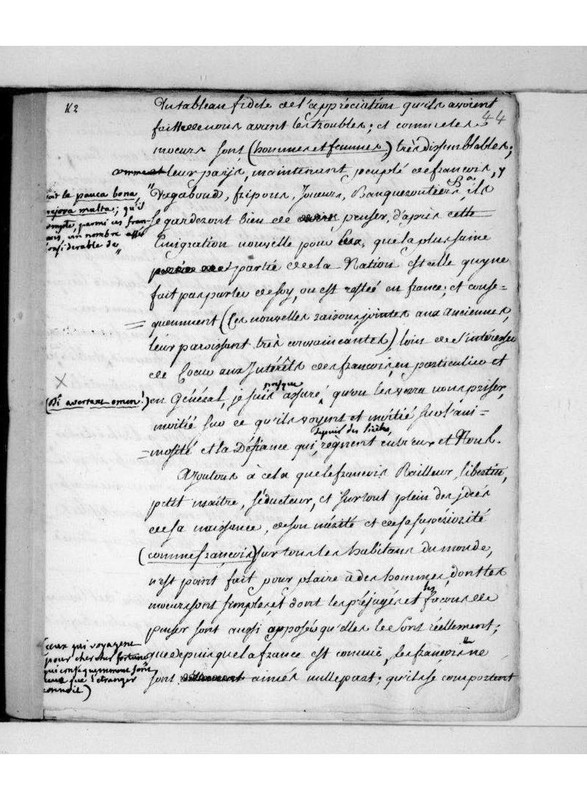 K2
44
Du tableau fidele de l'appréciation qu'ils avoient
faitte de nous avant les troubles; et comme les
moeurs sont (hommes et femmes) très dissemblables;
leur pays, maintenant peuplé de francois, y
vagabond, fripons, Joueurs, Banqueroutiers &a, ils
se gardezont bien de penser, d'après cette
Emigration nouvelle pour eux, que la plus saine
partie de la Nation est elle qui ne
fait pas parler de soy, ou est restée en france; et conse-
quemment (les nouvelles raisons jointes aux anciennes,
leur paroissent très convaincantes) loin de s'intéresser
de Coeur aux Intérêts des francois, en particulier et
en Général, je suis presque assuré, qu'on les verra nous priser,
invitié sur ce qu'ils voyent et invitié sur l'ani-
mosité et la Défiance qui, depuis des siècles, regnent entr'eux et Nous.
Ajoutons à cela que le francois Railleur, libertin,
petit maître, séducteur, et surtout plein des idées
de sa naissance, de son et de sa supériorité
(comme françois) sur tous les habitans du monde,
n'est point fait pour plaire à des hommes, dont les
moeurs sont simples, et dont les préjugés et les facons de
penser sont aussi opposées qu'elles le sont réellement;
que depuis que la france est connue, les françois ne
sont aimés nulle part; qu'ils se comportent
pauca bona
majora malta; qu'il
compte, parmi ces fran-
cois, un nombre assez
considérable de
(Di avertant omen.)
(ceux qui voyagent
pour chercher fortune,
qui conséquemment sont
que l'étranger
connoit)